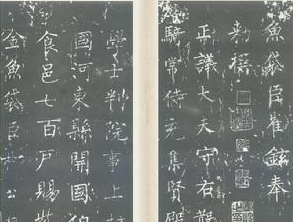 魚袋臣崔鉉奉
敕撰
正議大夫守右散
騎常侍充集賢殿
學士判院事上柱
國河東縣開國伯
食邑七百戶賜紫
金魚袋臣柳公